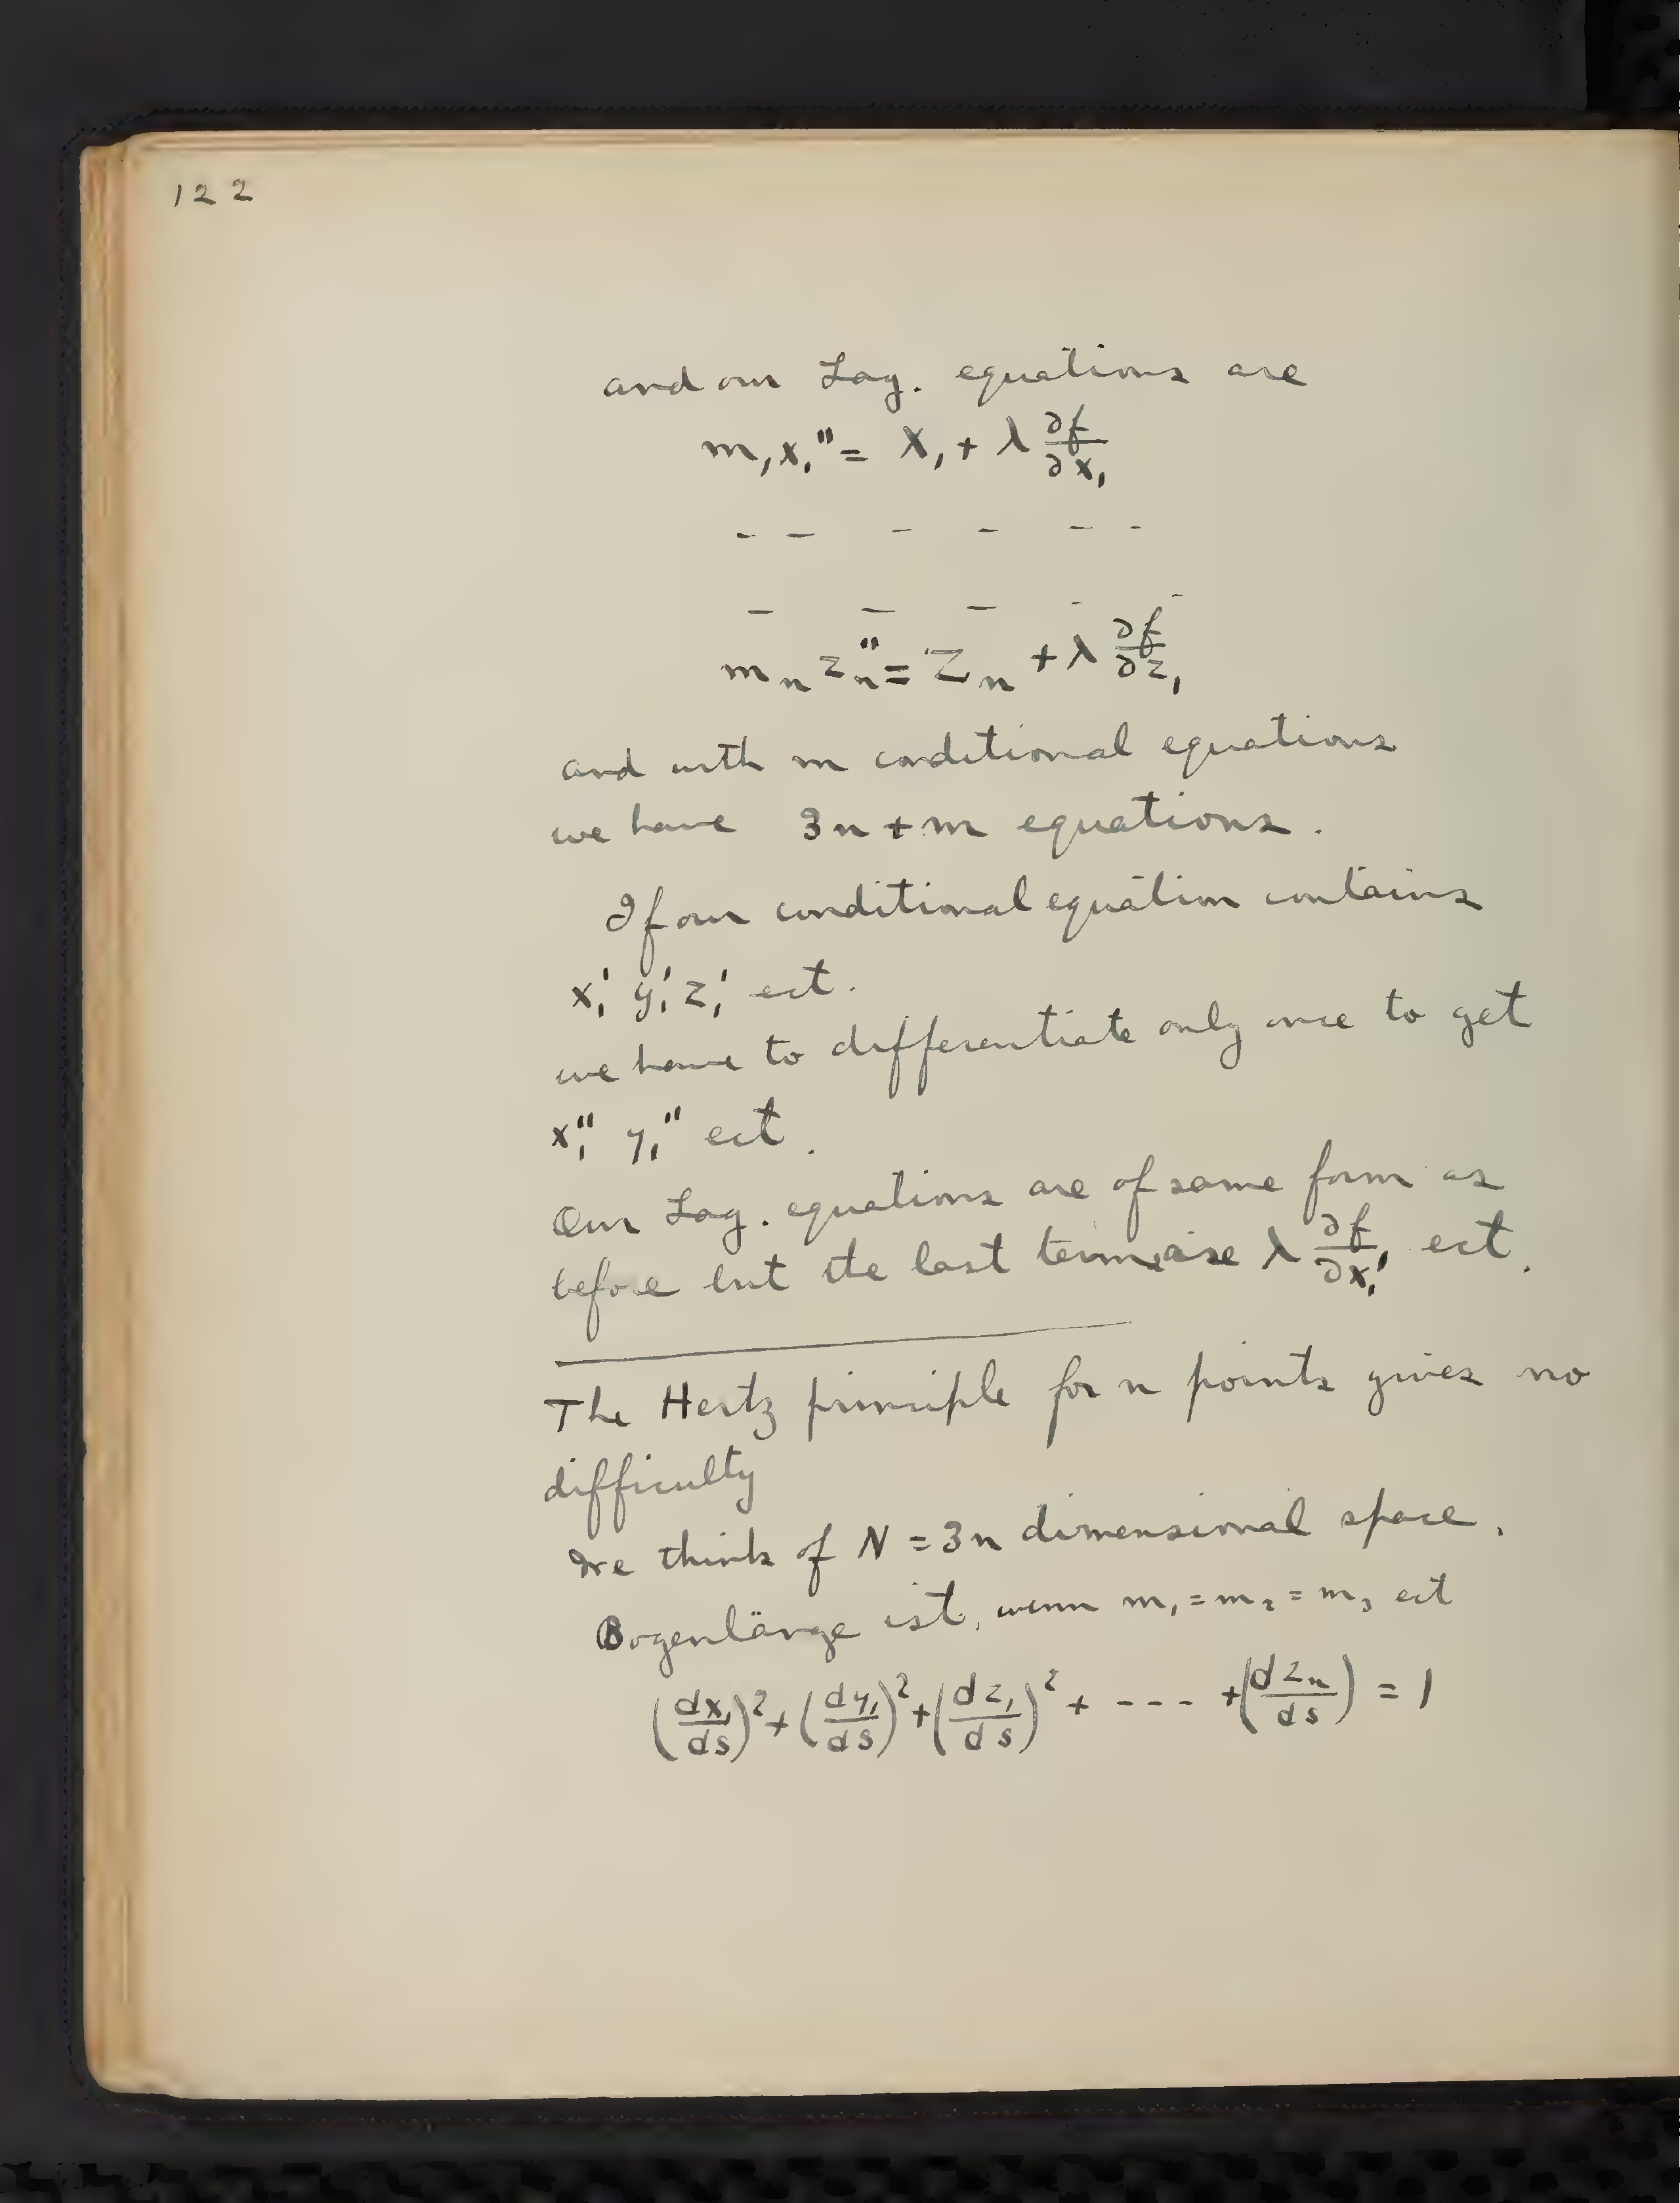 122
and our Lag. equations are
m₁x₁" = X₁ + λ ∂f/∂x₁
- - - - - -
- - - - -
mₙ zₙ" = Zₙ + λ ∂f/∂z₁
and with m conditional equations
we have 3n + m equations.
If our conditional equation contains
x₁' y₁' z₁' ect.
we have to differentiate only once to get
x₁" y₁" ect.
Our Lag. equations are of same form as
before but the last terms are λ ∂f/∂x₁' ect.
The Hertz principle for n points gives no
difficulty
We think of N = 3n dimensional space.
Bogenlänge ist, wenn m₁ = m₂ = m₃ ect
(dx₁/ds)² + (dy₁/ds)² + (dz₁/ds)² + - - - - + (dzₙ/ds) = 1